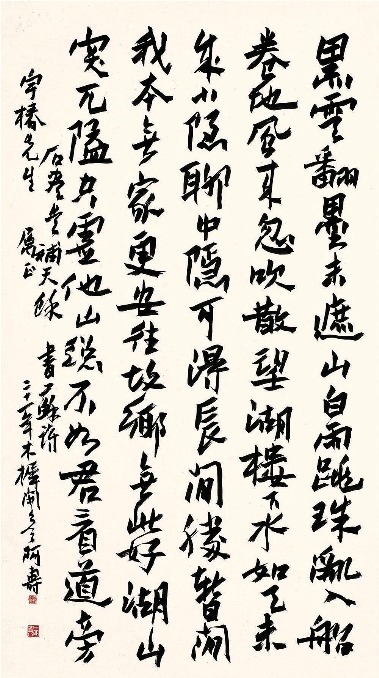 黑雲翻墨未遮山白雨跳珠亂入船
卷地風來忽吹散望湖樓下水如天未
成小隱聊中隱可得長閒勝暫閒
我本無家更安往故鄉無此好湖山
突兀隘空虛他山總不如君看道旁
石盡是補天餘 書蘇詩
宇橋先生 屬正
年木樨開